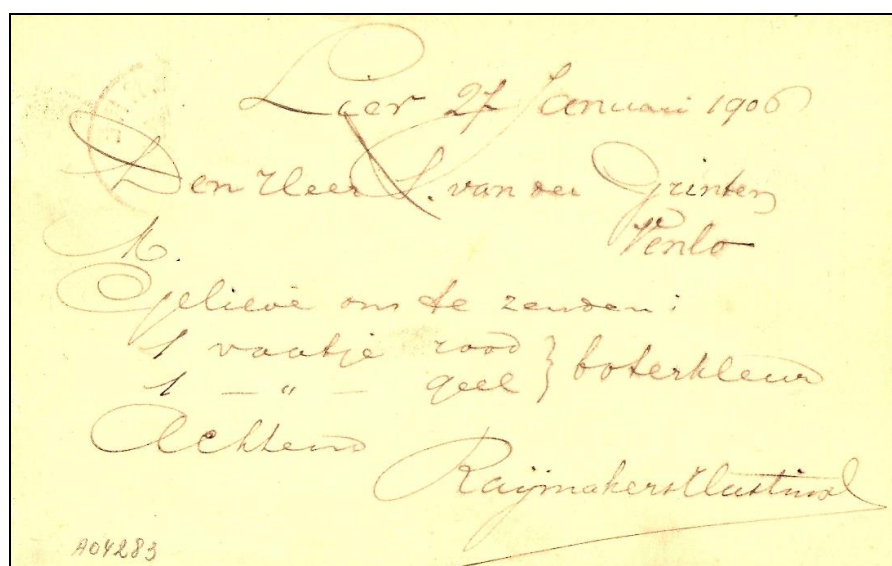 Lier 27 Januari 1906
Den Heer L. van der Grinten
Venlo
M.
Gelieve ons te zenden:
1 vaatje rood } boterkleur
1 — " — geel
Achtend
Raijmakers
A04283